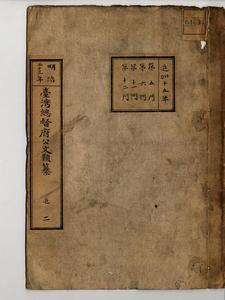 明治
三十三年
臺灣總督府公文類纂
追二
追加十五年
第五門
第六門
第十一門
第十二門